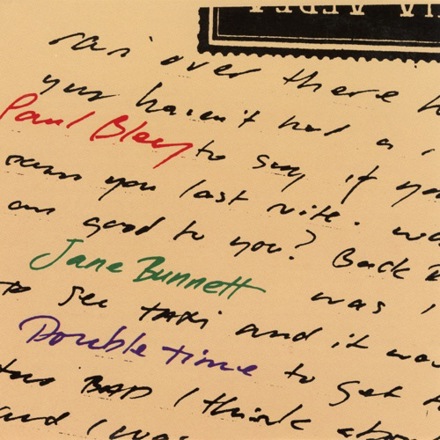 over there
you haven't had a
Paul Bley to say if
you last nite.
good to you? Back
Jane Bunnett was I
to see taxi and it
Double time to get
too BAD I think
and I